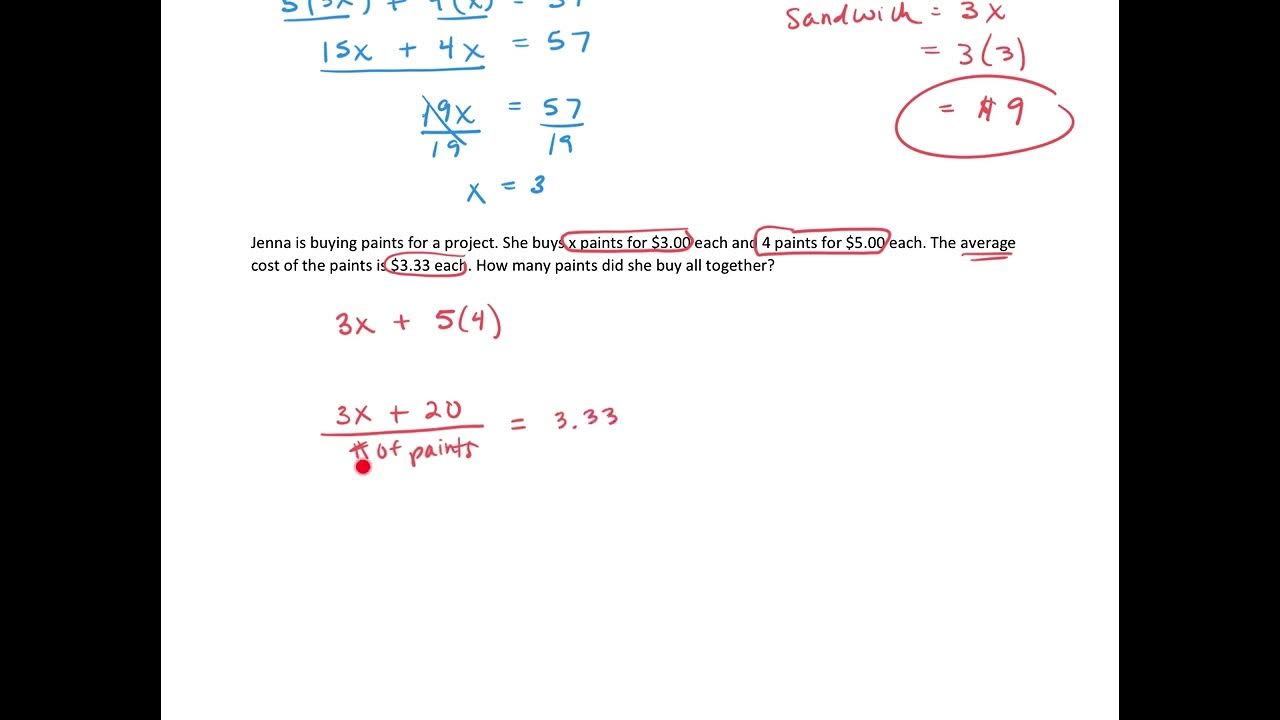 Sandwich = 3x
15x + 4x = 57
= 3(3)
19x = 57
19 19
= $9
x = 3
Jenna is buying paints for a project. She buys x paints for $3.00 each and 4 paints for $5.00 each. The average
cost of the paints is $3.33 each. How many paints did she buy all together?
3x + 5(4)
3x + 20
# of paints
= 3.33